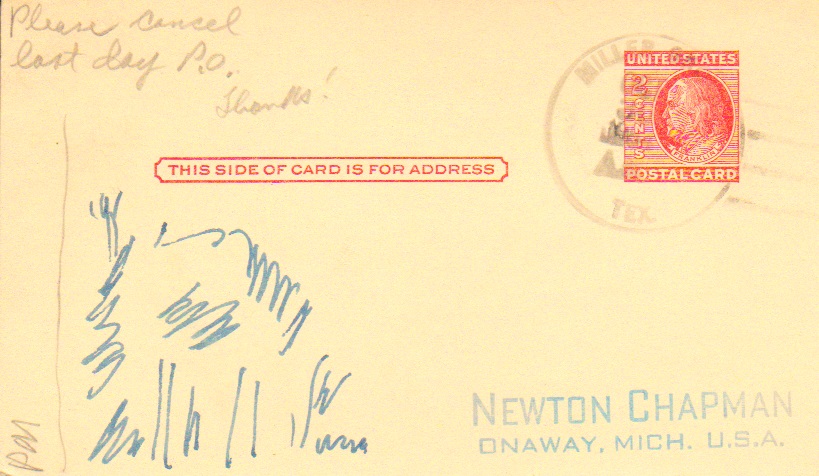 Please cancel
last day P.O.
Thanks!
MILLER
UNITED STATES
2 CENTS
FRANKLIN
POSTAL CARD
TEX.
THIS SIDE OF CARD IS FOR ADDRESS
NEWTON CHAPMAN
ONAWAY, MICH. U.S.A.